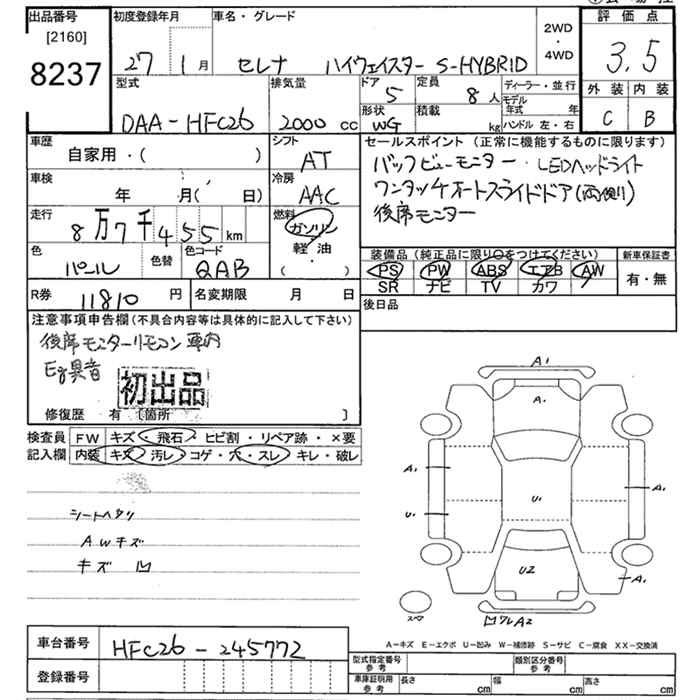 出品番号
[2160]
8237
初度登録年月
27 1月
車名・グレード
セレナ ハイウェイスター S-HYBRID
2WD
・
4WD
評価点
3.5
外装 内装
C B
型式
DAA-HFC26
排気量
2000 cc
ドア
5
定員
8人
形状
WG
積載
kg
ディーラー・並行
モデル年式 年
ハンドル 左・右
車歴
自家用・( )
シフト
AT
車検
年 月( 日)
冷房
AAC
走行
8万7千455km
燃料
ガソリン
軽・油
( ・ )
色
パール
色替
色コード
QAB
R券 11810 円
名変期限 月 日
セールスポイント (正常に機能するものに限ります)
バックビューモニター・LEDヘッドライト
ワンタッチオートスライドドア(両側)
後席モニター
装備品 (純正品に限り○をつけてください)
PS PW ABS エアB AW
SR ナビ TV カワ
新車保証書
有・無
後日品
注意事項申告欄(不具合内容等は具体的に記入して下さい)
後席モニターリモコン 車内
Eg異音
初出品
修復歴 有 〔箇所 〕
検査員 FW キズ・飛石・ヒビ割・リペア跡・×要
記入欄 内装 キズ・汚レ・コゲ・穴・スレ・キレ・破レ
シートヘタリ
AWキズ
キズ 凹
A1
A1
A1
U1
U1
A1
U2
A1
スペア
凹ワレA2
A-キズ E-エクボ U-凹み W-補修跡 S-サビ C-腐食 XX-交換済
車台番号 HFC26-245772
登録番号
型式指定番号 参考
類別区分番号 参考
車庫証明用 参考
長さ cm 幅 cm 高さ cm